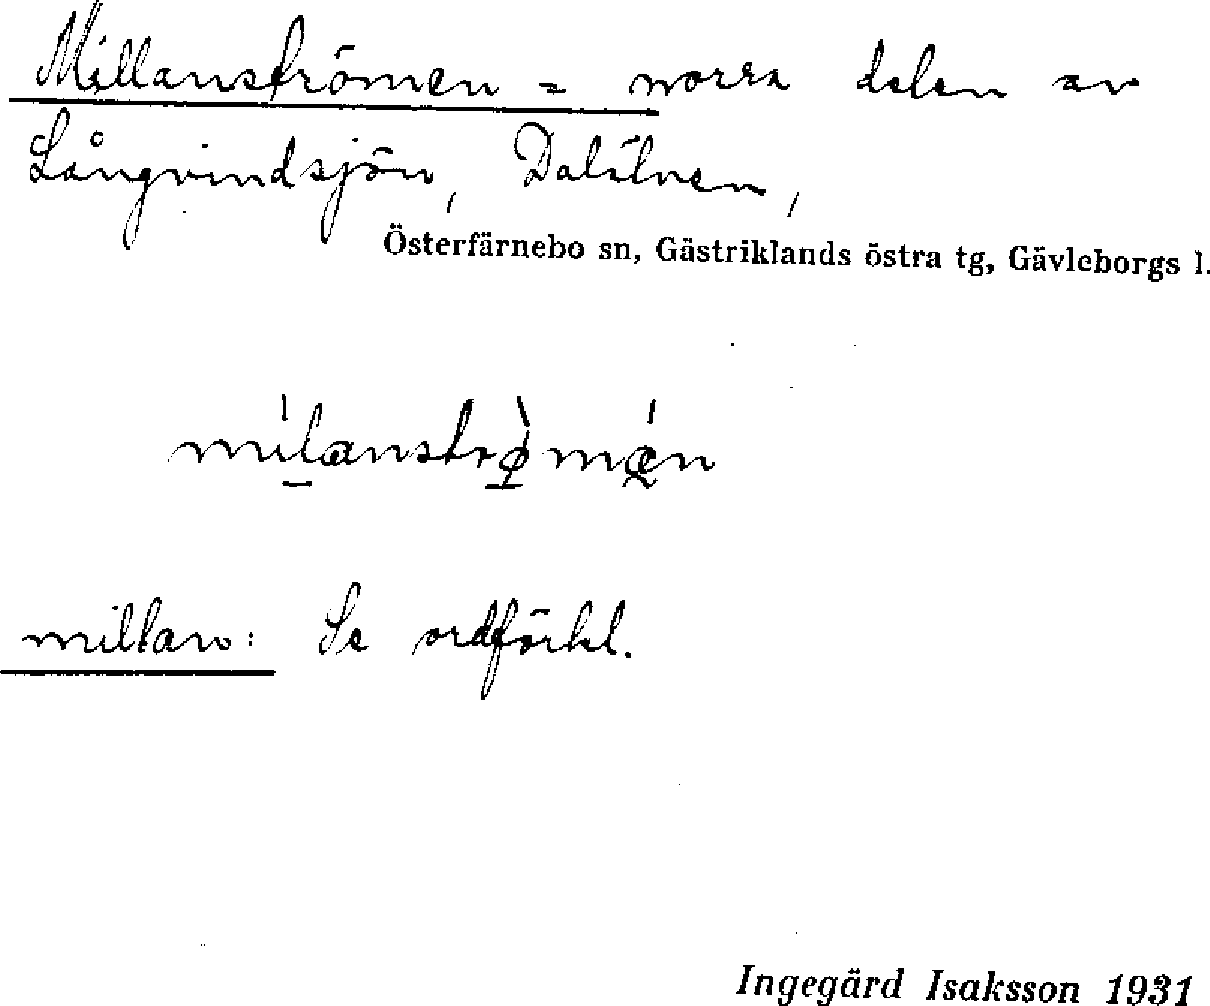 Millanströmen = norra delen av
Långvindsjön, Dalälven,
Österfärnebo sn, Gästriklands östra tg, Gävleborgs l.
millan: Se ordförkl.
Ingegärd Isaksson 1931